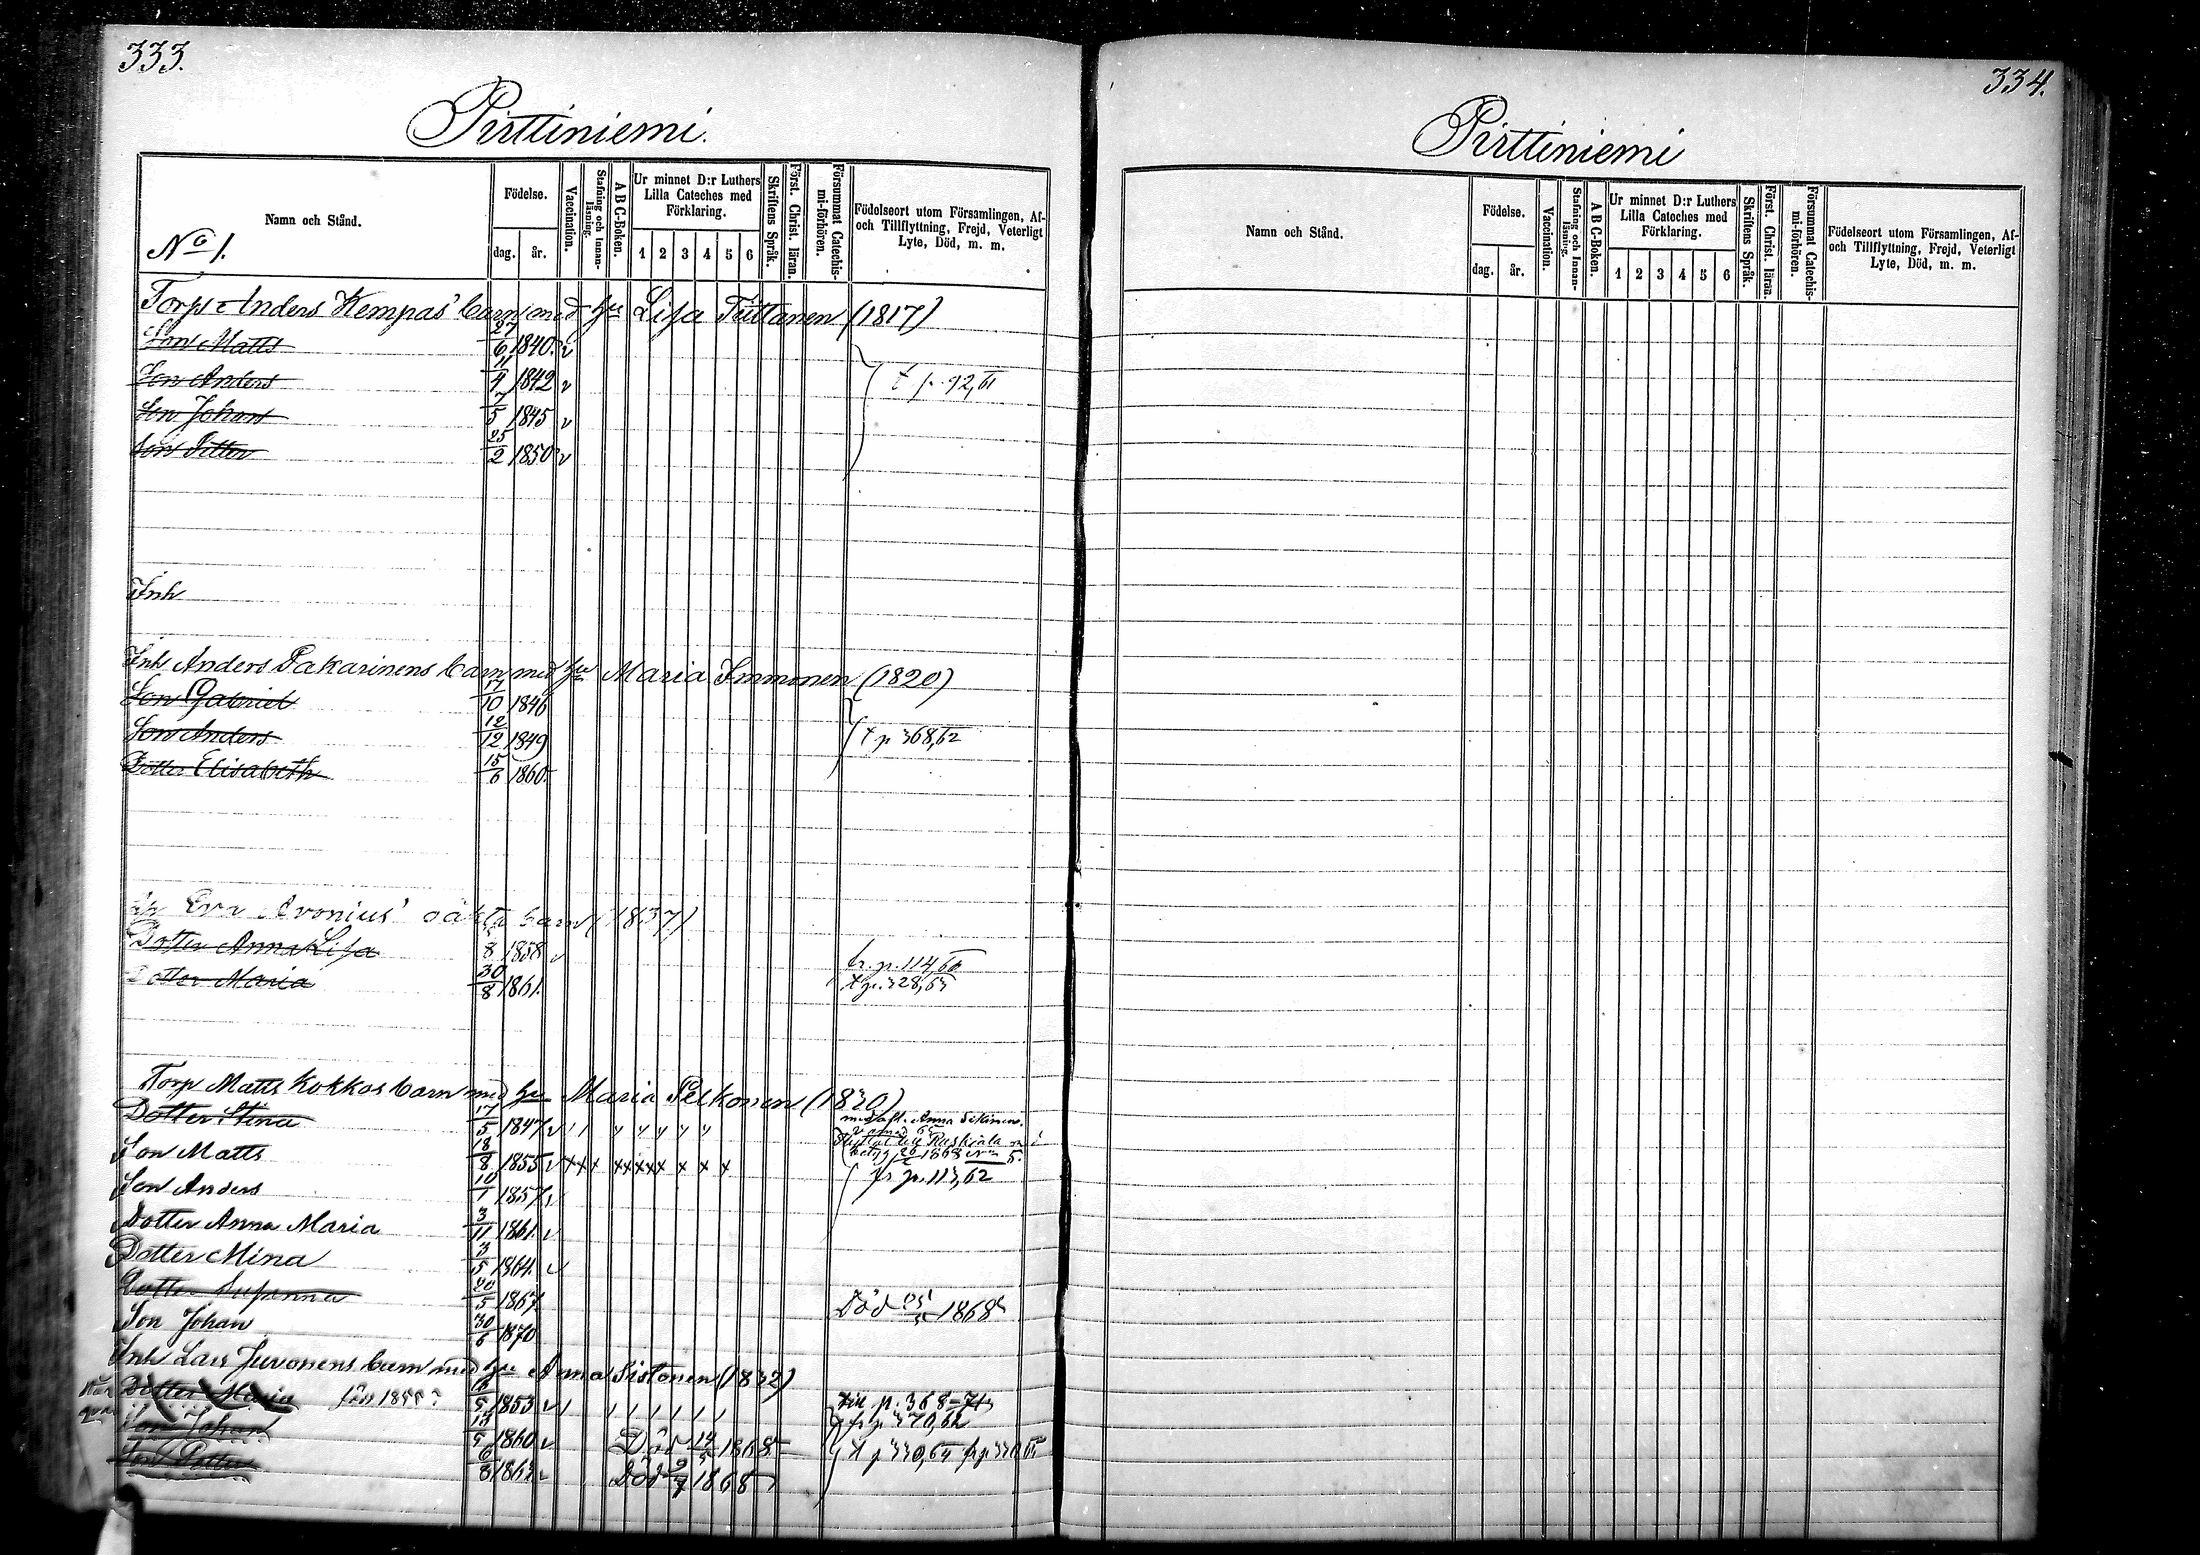 333.
Pirttiniemi.
Namn och Stånd.
No 1.
Födelse.
dag. år.
Vaccination.
Stafning och Innanläsning.
A B C-Boken.
Ur minnet D:r Luthers Lilla Cateches med Förklaring.
1 2 3 4 5 6
Skriftens Språk.
Först. Christ. läran.
Försummat Catechismi-förhören.
Födelseort utom Församlingen, Af- och Tillflyttning, Frejd, Veterligt Lyte, Död, m. m.
Torp Anders Kempas' barn med hu Lisa Tiittanen (1817)
Son Matts 27/6 1840 v
Son Anders 11/9 1842 v t p. 92,61
Son Johan 7/5 1845 v
Son Petter 25/2 1850 v
Inh
Inh Anders Pakarinens barn med hu Maria Immonen (1820)
Son Gabriel 17/10 1846
Son Anders 12/12 1849 t p 368,62
Dotter Elisabeth 15/6 1860
Eva Aronius' oäkta barn (1837)
Dotter Anna Lisa 5/8 1858 v fr. p. 114,60
Dotter Maria 30/8 1861. t p. 328,63
Torp Matts Kokkos barn med hu Maria Pelkonen (1830)
Dotter Stina 17/5 1847 v
Son Matts 18/8 1855 v x x x x x x x x x x x
Son Anders 10/1 1857 v fr p. 113,62
Dotter Anna Maria 3/11 1861 v
Dotter Mina 3/5 1864 v
Dotter Susanna 20/5 1867 Död 1868
Son Johan 30/6 1870
Inh Lars Juvonens barn med hu Anna Sistonen (1832)
Dotter Maria född 1855? 1853 v till p. 368-71
Son Johan 1860 v Död 1868 fr p 370,62
Son Petter 6/8 1863 v Död 1868
334.
Pirttiniemi
Namn och Stånd.
Födelse.
dag. år.
Vaccination.
Stafning och Innanläsning.
A B C-Boken.
Ur minnet D:r Luthers Lilla Cateches med Förklaring.
1 2 3 4 5 6
Skriftens Språk.
Först. Christ. läran.
Försummat Catechismi-förhören.
Födelseort utom Församlingen, Af- och Tillflyttning, Frejd, Veterligt Lyte, Död, m. m.